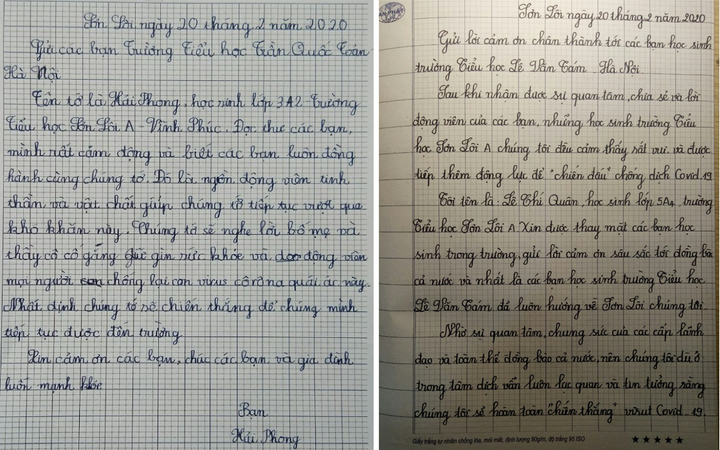 Sơn Lôi ngày 20 tháng 2 năm 2020
Gửi các bạn Trường Tiểu học Trần Quốc Toản
Hà Nội
Tên tớ là Hải Phong, học sinh lớp 3A2 Trường
Tiểu học Sơn Lôi A - Vĩnh Phúc. Đọc thư các bạn,
mình rất cảm động và biết các bạn luôn đồng
hành cùng chúng tớ. Đó là nguồn động viên tinh
thần và vật chất giúp chúng tớ tiếp tục vượt qua
khó khăn này. Chúng tớ sẽ nghe lời bố mẹ và
thầy cô cố gắng giữ gìn sức khỏe và động viên
mọi người chống lại con virus corona quái ác này.
Nhất định chúng tớ sẽ chiến thắng để chúng mình
tiếp tục được đến trường.
Xin cảm ơn các bạn, chúc các bạn và gia đình
luôn mạnh khỏe
Bạn
Hải Phong
Sơn Lôi ngày 20 tháng 2 năm 2020
Gửi lời cảm ơn chân thành tới các bạn học sinh
trường Tiểu học Lê Văn Tám. Hà Nội
Sau khi nhận được sự quan tâm, chia sẻ và lời
động viên của các bạn, những học sinh trường Tiểu
học Sơn Lôi A chúng tôi đều cảm thấy rất vui. và được
tiếp thêm động lực để "chiến đấu" chống dịch Covid.19
Tôi tên là: Lê Thí Quân, học sinh lớp 5A4, trường
Tiểu học Sơn Lôi A. Xin được thay mặt các bạn học
sinh trong trường, gửi lời cảm ơn sâu sắc tới đồng bào
cả nước và nhất là các bạn học sinh trường Tiểu học
Lê Văn Tám đã luôn hướng về Sơn Lôi chúng tôi.
Nhờ sự quan tâm, chung sức của các cấp lãnh
đạo và toàn thể đồng bào cả nước, nên chúng tôi dù ở
trong tâm dịch vẫn luôn lạc quan và tin tưởng rằng
chúng tôi sẽ hoàn toàn "chiến thắng" virut Covid.19.
Giấy trắng tự nhiên chống lóa, mỏi mắt, định lượng 80g/m, độ trắng 90 ISO